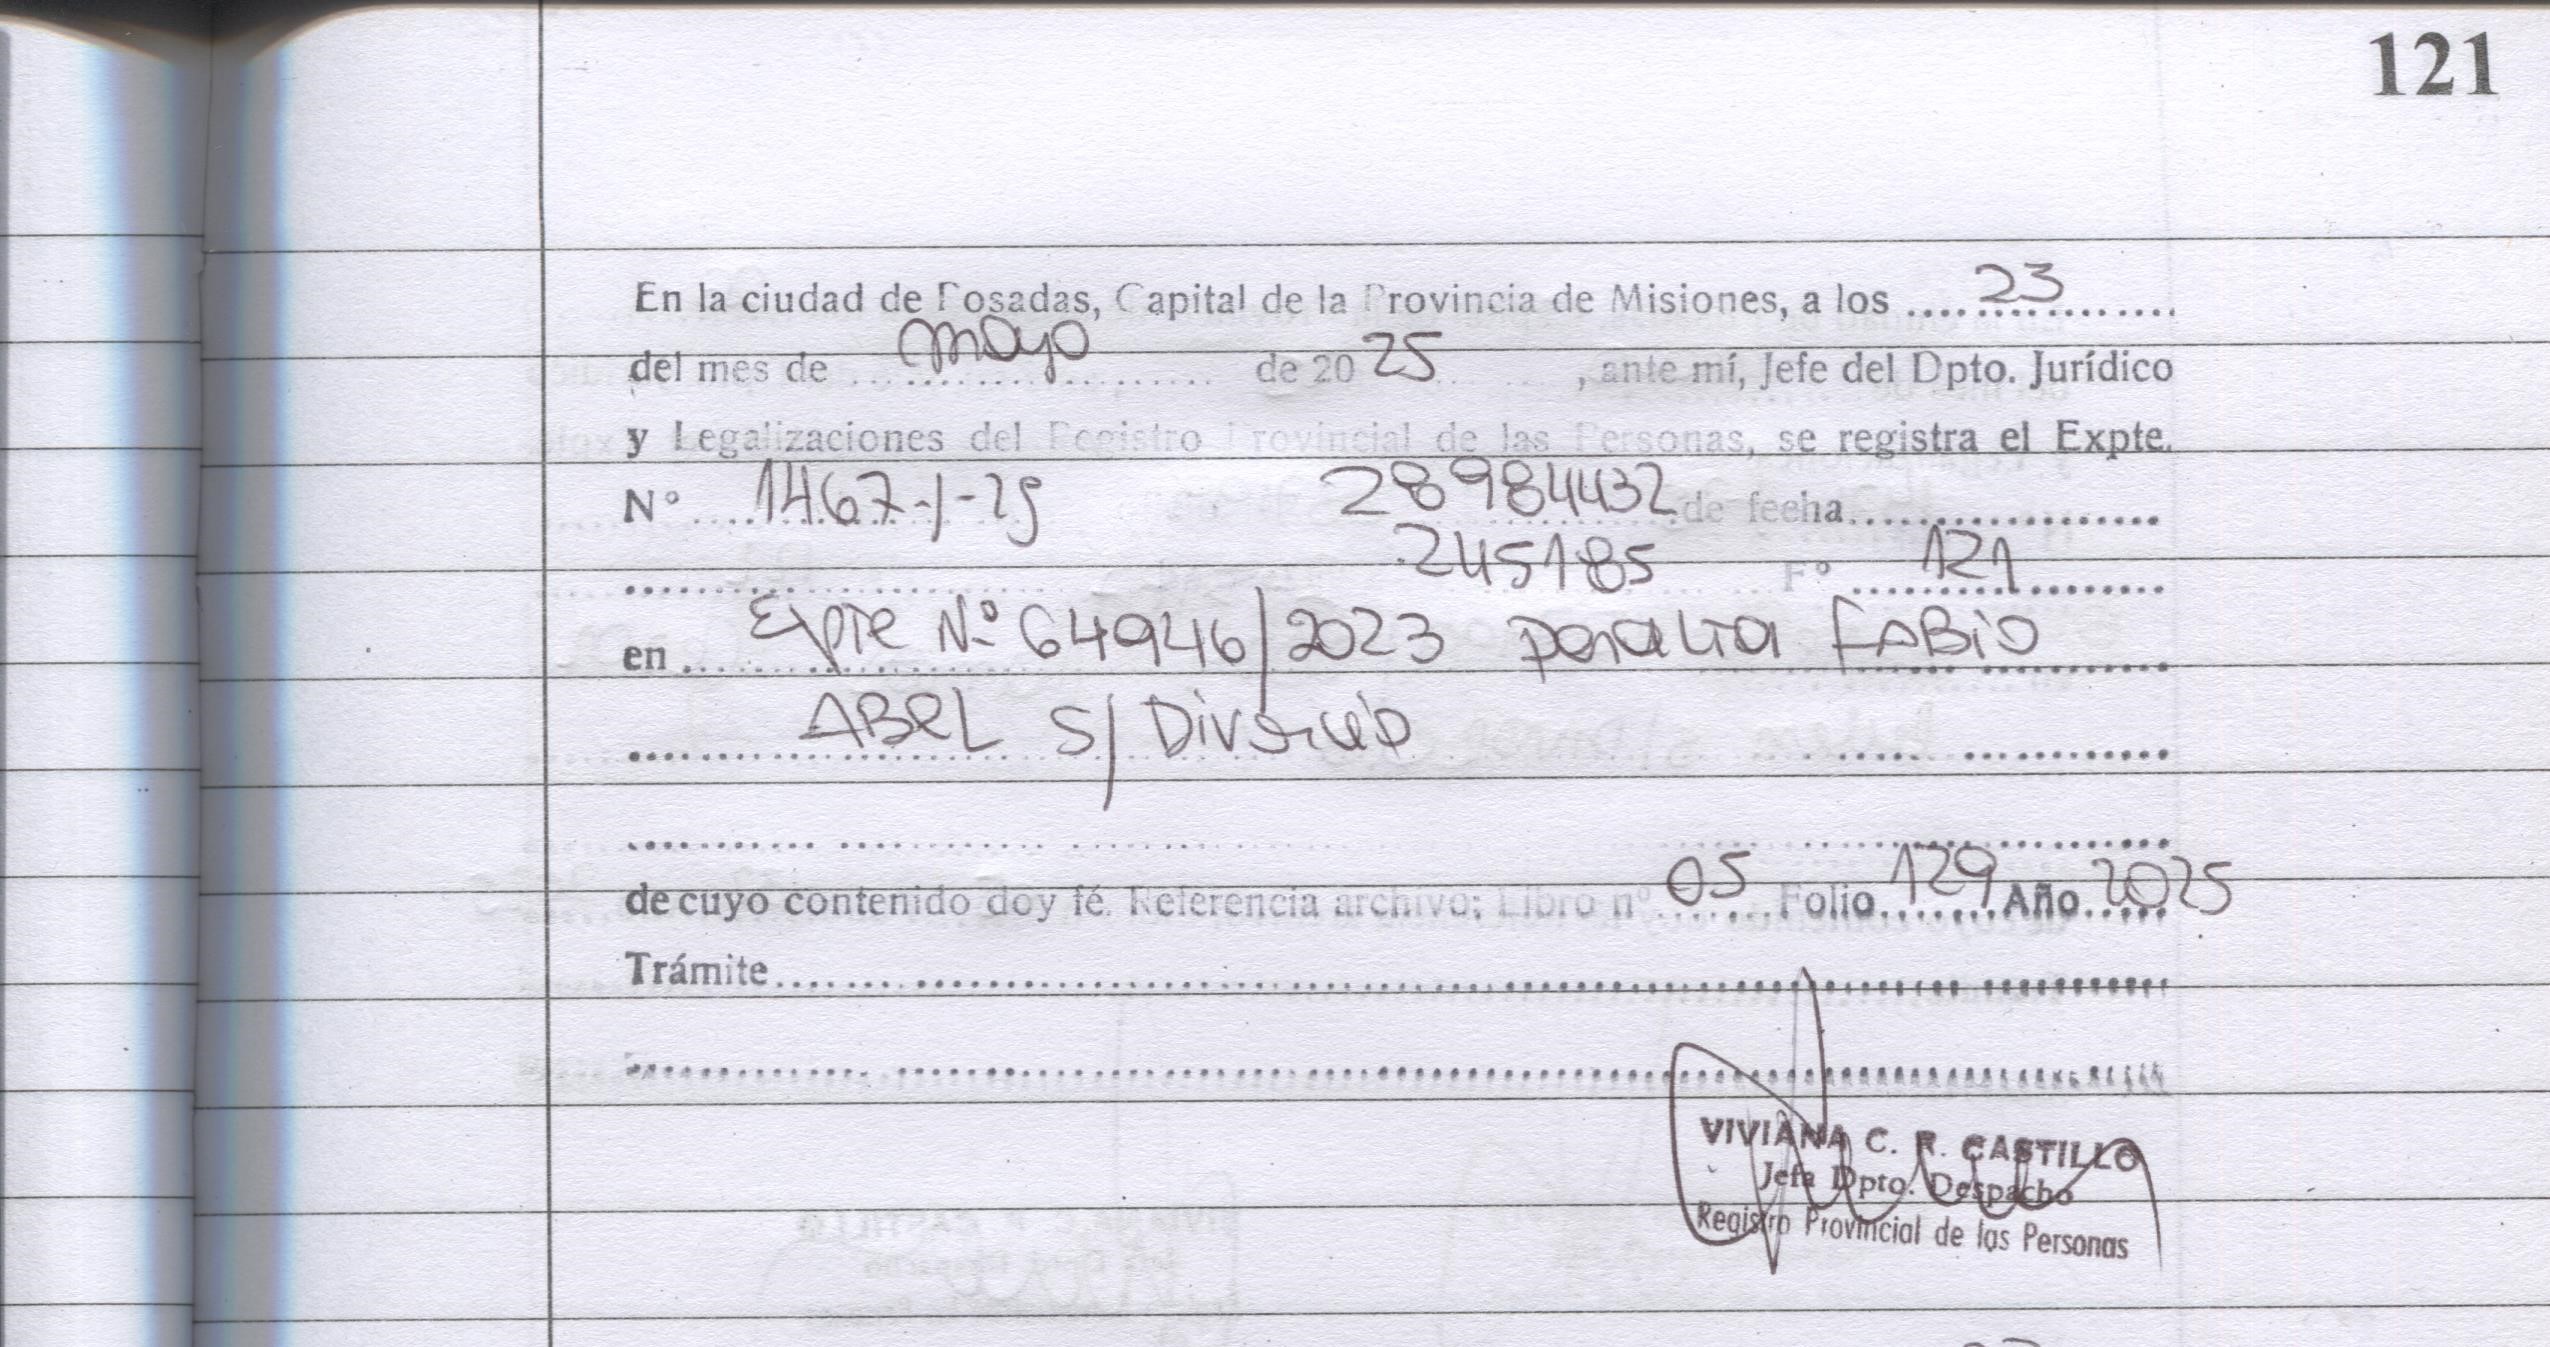 121
En la ciudad de Posadas, Capital de la Provincia de Misiones, a los ....23........
del mes de ....mayo.... de 2025 , ante mí, Jefe del Dpto. Jurídico
y Legalizaciones del Registro Provincial de las Personas, se registra el Expte.
N° ....1467-J-25 28984432 de fecha....................
.................... 245185 F° ....121............
en ....Expte Nº 64946/2023 Peralta FABIO
........ABEL S/ Divorcio ....................
........................................
de cuyo contenido doy fé. Referencia archivo: Libro nº 05 Folio 129 Año 2025
Trámite........................................
........................................
VIVIANA C. R. CASTILLO
Jefa Dpto. Despacho
Registro Provincial de las Personas